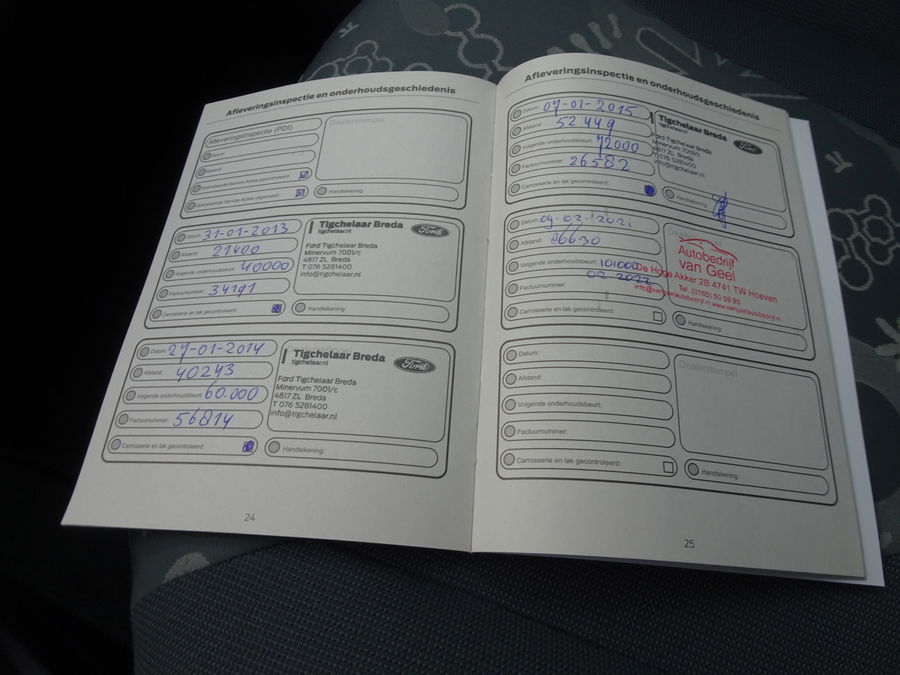 Afleveringsinspectie en onderhoudsgeschiedenis
Afleveringsinspectie (PDI)
Datum:
Afstand:
Openstaande Service-Acties gecontroleerd:
Openstaande Service-Acties uitgevoerd:
Dealerstempel
Handtekening:
Datum: 31-01-2013
Afstand: 21400
Volgende onderhoudsbeurt: 40000
Factuurnummer: 34191
Carrosserie en lak gecontroleerd:
Tigchelaar Breda
tigchelaar.nl
Ford
Ford Tigchelaar Breda
Minervum 7001/c
4817 ZL Breda
T 076 5281400
info@tigchelaar.nl
Handtekening:
Datum: 27-01-2014
Afstand: 40243
Volgende onderhoudsbeurt: 60.000
Factuurnummer: 56814
Carrosserie en lak gecontroleerd:
Tigchelaar Breda
tigchelaar.nl
Ford
Ford Tigchelaar Breda
Minervum 7001/c
4817 ZL Breda
T 076 5281400
info@tigchelaar.nl
Handtekening:
24
Afleveringsinspectie en onderhoudsgeschiedenis
Datum: 07-01-2015
Afstand: 52449
Volgende onderhoudsbeurt: 72000
Factuurnummer: 26582
Carrosserie en lak gecontroleerd:
Tigchelaar Breda
tigchelaar.nl
Ford
Ford Tigchelaar Breda
Minervum 7001/c
4817 ZL Breda
T 076 5281400
info@tigchelaar.nl
Handtekening:
Datum: 09-02-2021
Afstand: 86630
Volgende onderhoudsbeurt: 101000
02 2022
Factuurnummer:
Carrosserie en lak gecontroleerd:
Dealerstempel
Autobedrijf
van Geel
De Hoge Akker 2B 4741 TW Hoeven
Tel. (0165) 50 59 95
info@vangeelautobedrijf.nl www.vangeelautobedrijf.nl
Handtekening:
Datum:
Afstand:
Volgende onderhoudsbeurt:
Factuurnummer:
Carrosserie en lak gecontroleerd:
Dealerstempel
Handtekening:
25